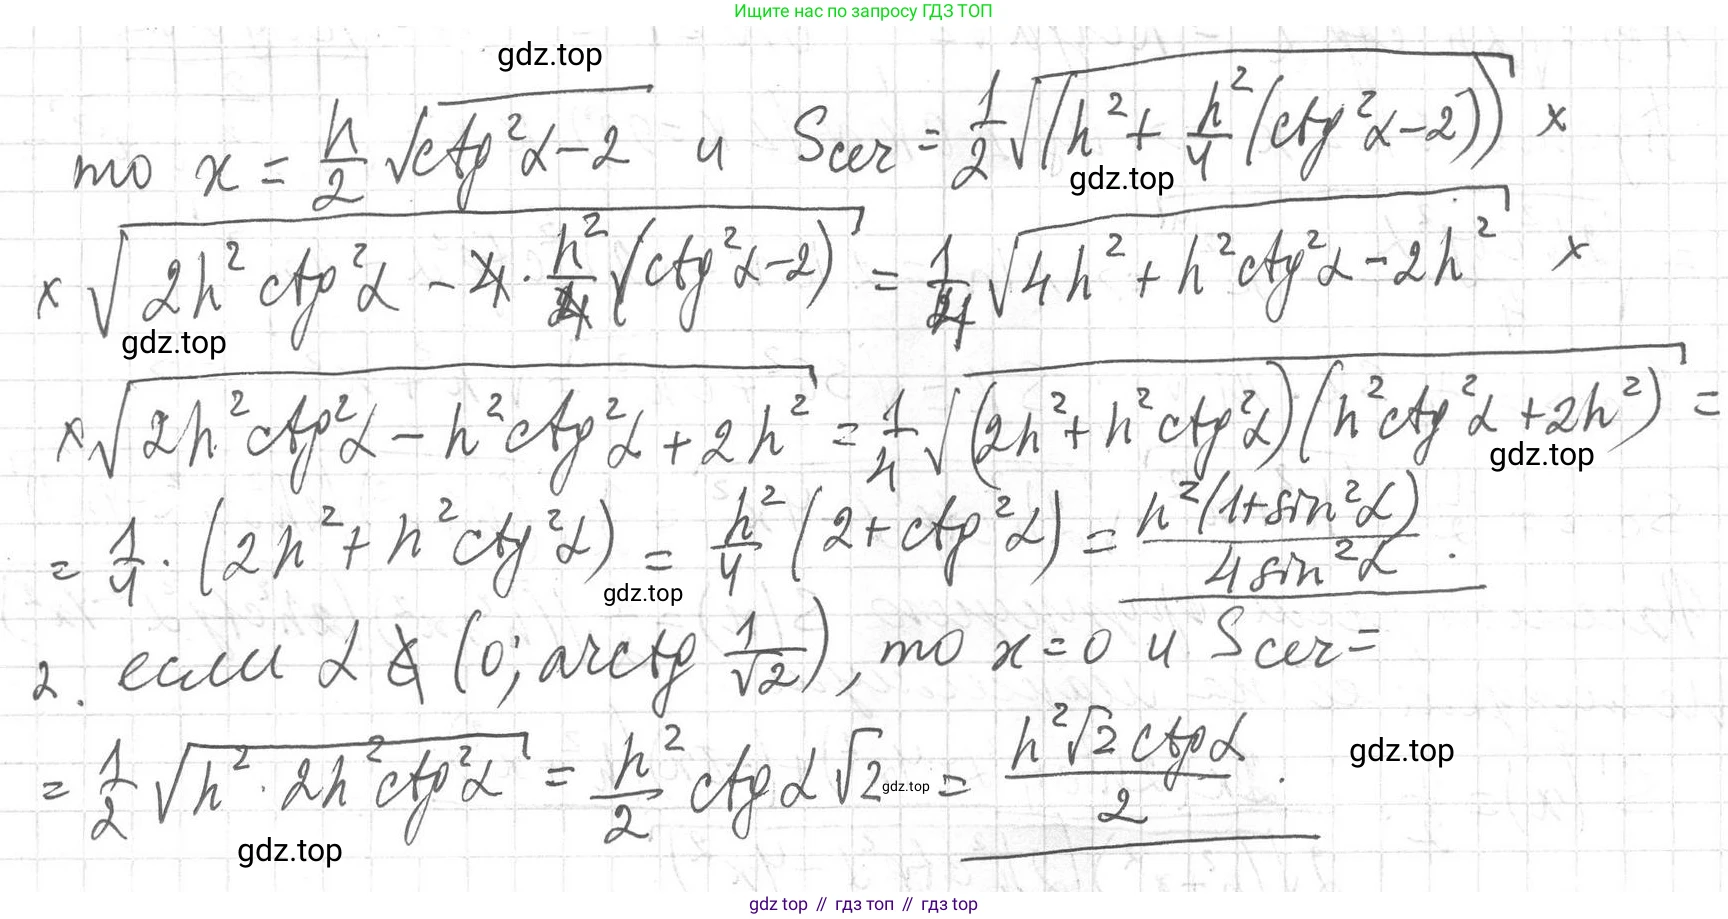 Ищите нас по запросу ГДЗ ТОП
gdz.top
то x = h/2 √(ctg²α − 2) и Sсеч = 1/2 √((h² + h²/4 (ctg²α − 2)) ×
gdz.top
× √(2h² ctg²α − 4 · h²/4 (ctg²α − 2)) = 1/4 √(4h² + h² ctg²α − 2h²) ×
gdz.top
× √(2h² ctg²α − h² ctg²α + 2h²) = 1/4 √((2h² + h² ctg²α)(h² ctg²α + 2h²)) =
gdz.top
= 1/4 · (2h² + h² ctg²α) = h²/4 (2 + ctg²α) = h²(1 + sin²α)/4 sin²α .
gdz.top
2. если α ∈ (0; arctg 1/√2), то x = 0 и Sсеч =
= 1/2 √(h² · 2h² ctg²α) = h²/2 ctg α √2 = h²√2 ctg α/2 .
gdz.top
gdz.top
gdz.top
gdz top // гдз топ // гдз top